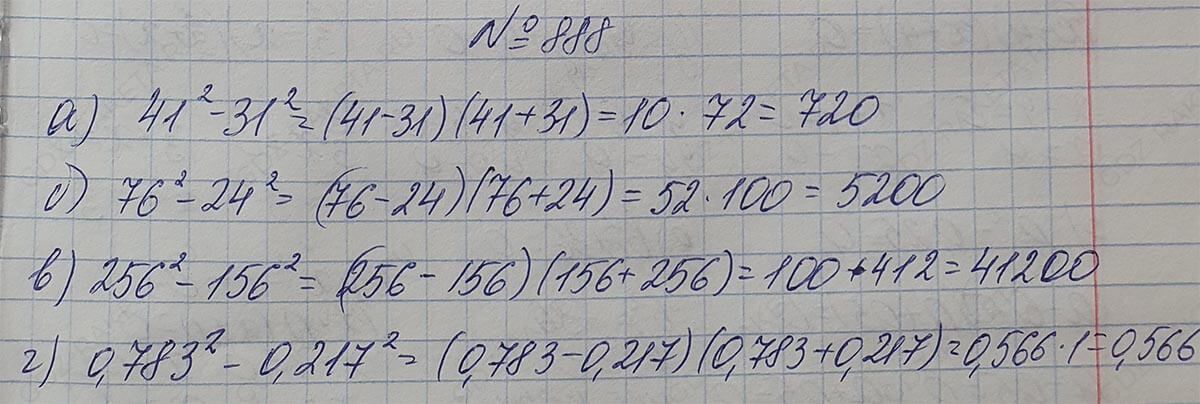 № 888
а) 41² - 31² = (41 - 31) (41 + 31) = 10 · 72 = 720
б) 76² - 24² = (76 - 24) (76 + 24) = 52 · 100 = 5200
в) 256² - 156² = (256 - 156) (156 + 256) = 100 · 412 = 41200
г) 0,783² - 0,217² = (0,783 - 0,217) (0,783 + 0,217) = 0,566 · 1 = 0,566